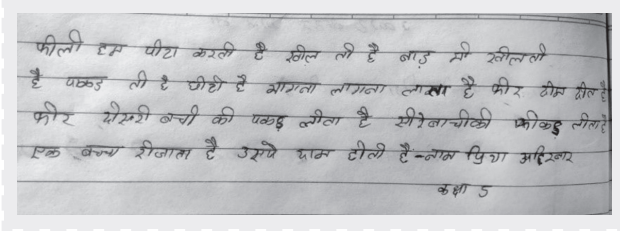 फीली हम पीटा करती है खील ती है बाड़ मी खीलती
है पकड़ ती है छीही है भागता लागता लाता है फीर टीम दील है
फीर दोसरी बच्ची की पकड़ लीता है सीरे बाचीकी फीकड़ लीता है
एक बच्च रीजाता है उसपे दाम दीती है - नाम प्रिया अहिरवार
कक्षा 5